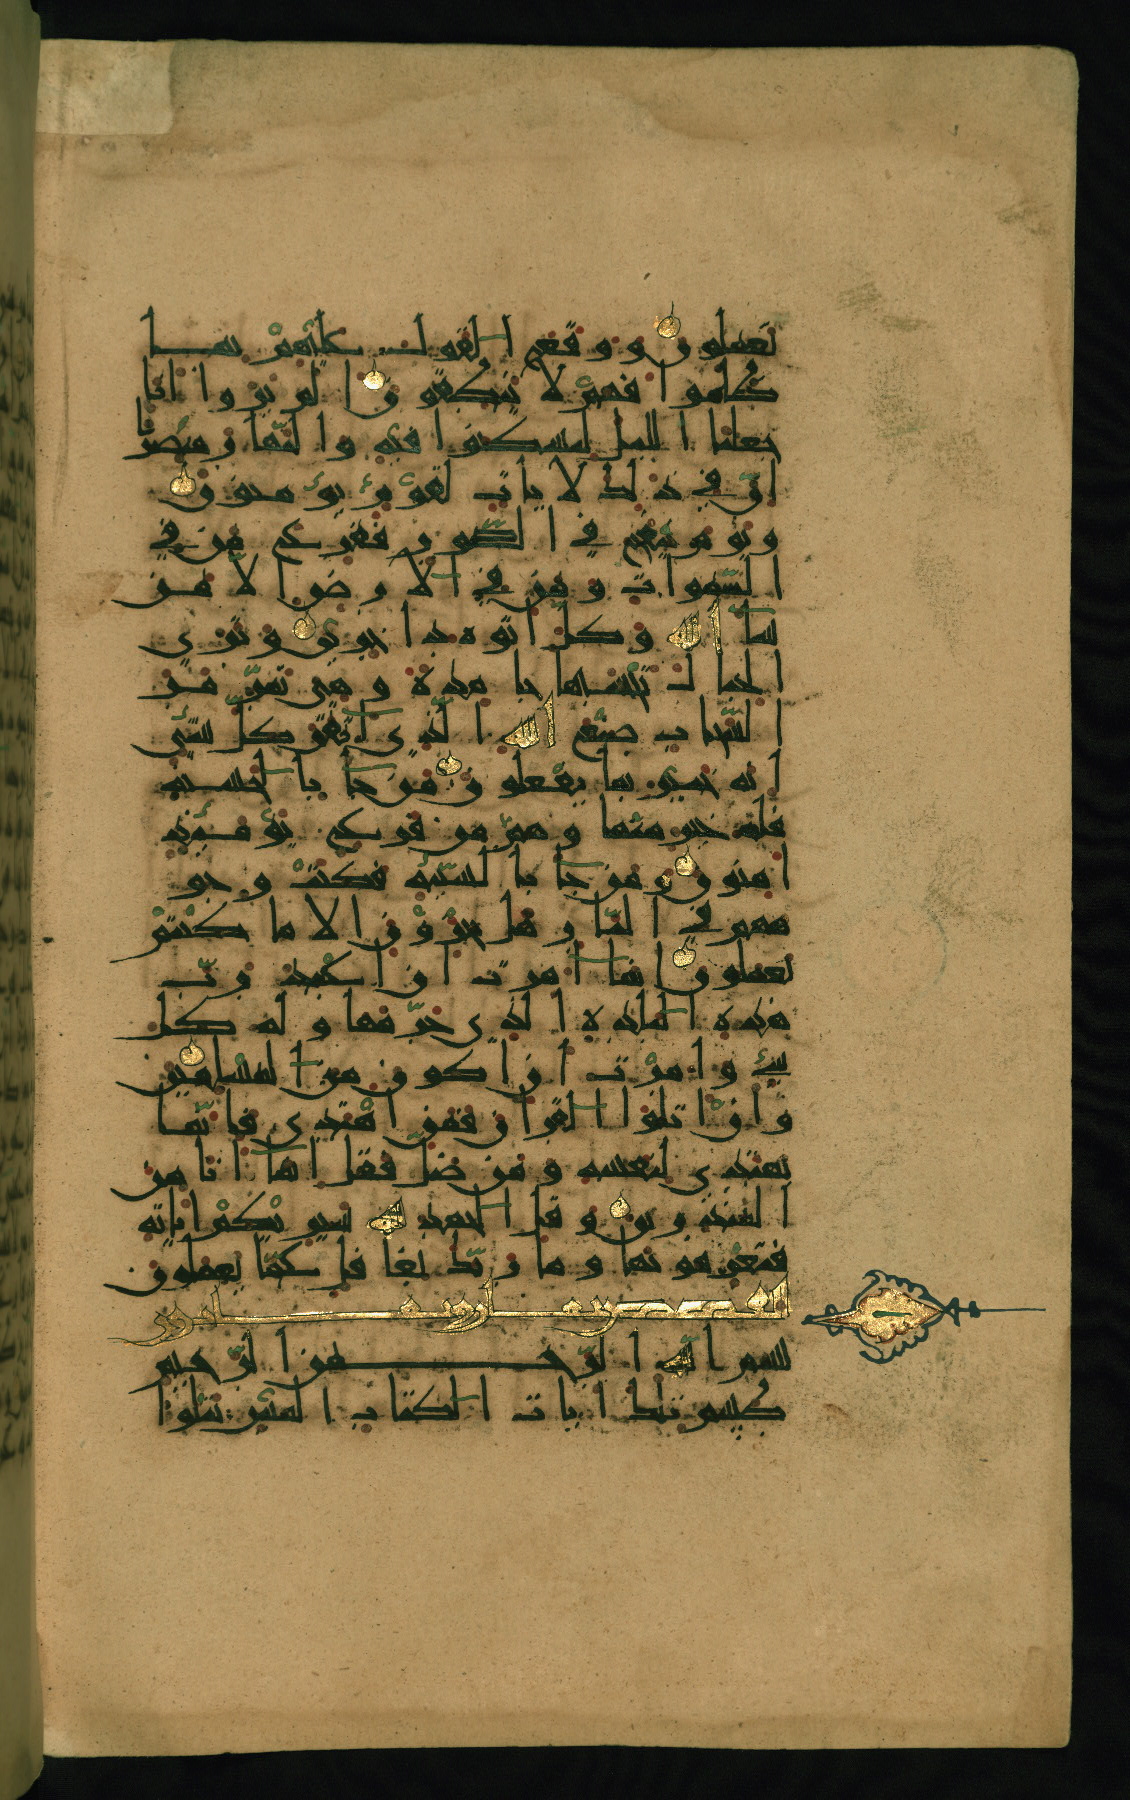 تعملون ووقع القول عليهم بما
ظلموا فهم لا ينطقون الم يروا انا
جعلنا الليل ليسكنوا فيه والنهار مبصرا
ان في ذلك لايات لقوم يؤمنون
ويوم ينفخ في الصور ففزع من في
السموات ومن في الارض الا من
شآ الله وكل اتوه داخرين وترى
الجبال تحسبها جامدة وهي تمر مر
السحاب صنع الله الذي اتقن كل شي
انه خبير بما يفعلون من جآ بالحسنة
فله خير منها وهم من فزع يومئذ
امنون ومن جآ بالسيئة فكبت وجو
ههم في النار هل تجزون الا ما كنتم
تعملون انمآ امرت ان اعبد رب
هذه البلدة الذي حرمها وله كل
شي وامرت ان اكون من المسلمين
وان اتلوا القران فمن اهتدى فانما
يهتدي لنفسه ومن ضل فقل انمآ انا من
المنذرين وقل الحمد لله سيريكم اياته
فتعرفونها وما ربك بغافل عما تعملون
القصص
بسم الله الرحمن الرحيم
طسم تلك ايات الكتاب المبين نتلوا